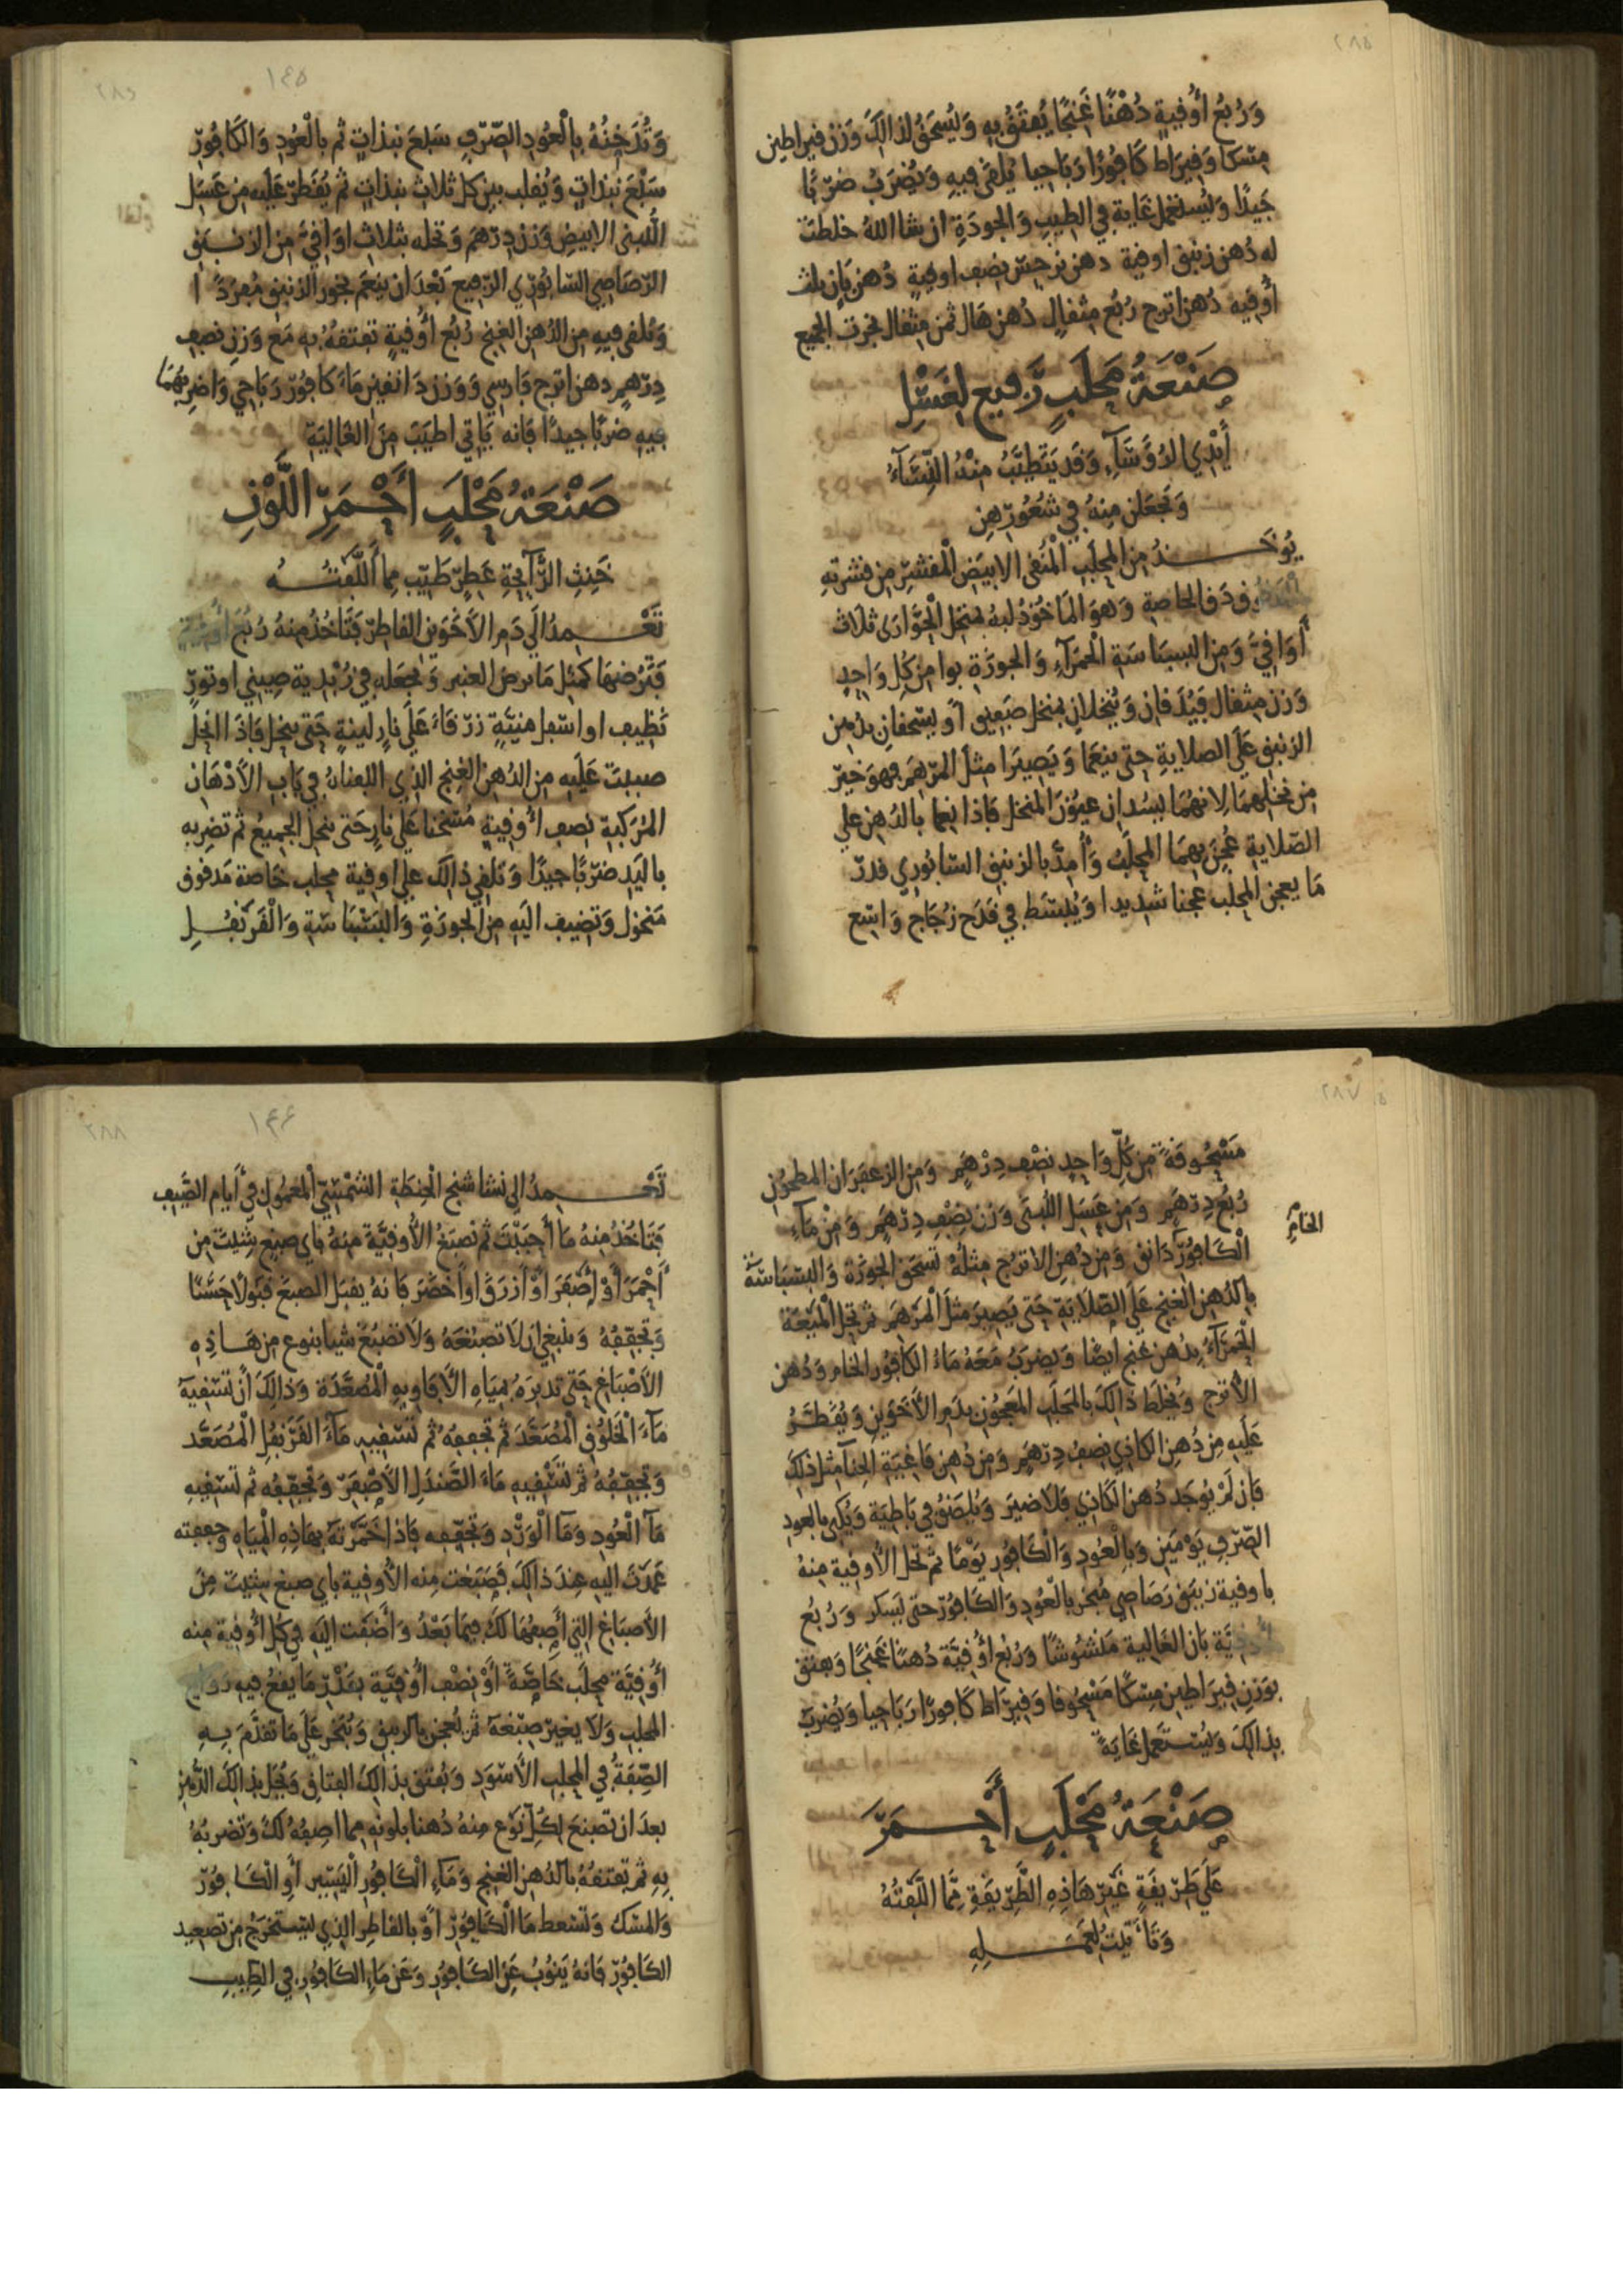 ٢٨٥
وَرُبُعُ أُوقيةٍ دُهْنًا غَنِجًا يُفتَقُ بِهِ وَيُسْحَقُ لذالكَ وَزنُ قيراطين
مِسْكًا وَقيرَاط كَافُورًا رَبَاحِيا يُلقَى فيهِ وَيُضرَبُ ضرْبًا
جَيدًا وَيُستعْمل غاية في الطيبِ وَالجودَةِ ان شا اللهُ خلطت
له دُهن زنبق اوقية دهن نرجس نصف اوقيةٍ دُهن بَان ثلث
أُوقيه دُهن اترج رُبُع مثقالٍ دُهن هَال ثمن مثقال بخرت الجميع
صَنْعَةُ مَحْلَبٍ رَّفيعٍ لِغَسْلِ
أَيْدِي الرُّؤَسَآءِ وَقَد يَتَطيَّبُ مِنْهُ النِّسَآءُ
وَتَجعَلن مِنهُ في شُعُورِهِن
يُوخَذُ من المحلَب المُنقى الابيَض المقشّر من قشرتهِ
دَق الخاصةِ وَهوَ المَاخُوذُ لبهُ بمنخل الحُوَّارَى ثلاث
أَوَاقيَّ وَمِن البسبَاسَة الحمرَآءِ وَالجوزَة بوا من كُل وَاحِدٍ
وَزن مثقال فيُدَقان وَيُنخَلانِ بمنخل صَفيق أو يسحقانِ بدُهن
الزنبق عَلَى الصلايةِ حتى ينعَمَا وَيَصِيرَا مثل المرْهَمِ فهوَ خيرٌ
من نخلهمَا لانهُمَا يسُدان عيُونَ المنخل فاذا نعما بالدُهن على
الصّلايةِ عُجِنَ بهمَا المحلَبُ وَأُمِدَّ بالزنبق السّابُورِي قدرَ
مَا يعجن المحلب عجنا شديدا وَيُبسَط في قدَح زُجَاج وَاسِع
١٤٥
وَتُدَخِنُهُ بِالْعُودِ الصّرفِ سَبعَ نبذاتٍ ثم بالْعُودِ وَالكَافُورِ
سَبْعَ نبذاتٍ وَيُقلب بين كل ثلاث نبذاتٍ ثم يُقَطر عَلَيه من عَسَل
اللُبنى الابيضِ وَزن دِرْهَم وَتحله بثلاث اوَاقيَّ من الزنبَقِ
الرّصَاصِي السّابُورِي الرّفيع بَعْدَ ان ينعَم بخور الزنبق مُفرَدً ا
وَيُلقى فيهِ مِن الدُهن الغنج رُبُع أُوقيةٍ تفتقهُ بهِ مَعَ وَزنِ نصفِ
دِرْهمٍ دهن اترج فارسي وَوَزن دَانقين مَاءَ كافُورٍ رَبَاحِي وَاضربهمَا
فيهِ ضربًا جيدًا فإنه يَاتي اطيَبَ مِنَ الغَاليَةِ
صَنْعَةُ مَحْلَبٍ أَحْمَرِ اللَّوْنِ
خَنِثِ الرَّآئحةِ عَطِرٍ طَيّبٍ مما أَلَّفتُهُ
تَعْمدُ الَى دَمِ الأَخَوَينِ القاطر فَتَاخُذُ مِنهُ رُبُعَ أُوقية
فَتَرُضهَا كَمثلِ مَا يرض العنبر وَتجعَلهِ في زُبْدِية صِينيٍ او تورٍ
نَظِيف او اسفل هنيَّةٍ زرْقاءَ عَلَى نارٍ لينةٍ حَتى ينحل فَاذَا انحل
صببتَ عَلَيهِ من الدُهن الغَنج الذي اللفناهُ في بَابِ الأَدْهَان
المُرَكبة نصف أُوقيةٍ مُسَخنا عَلى نارٍ حَتى ينحل الجميعُ ثم تضربه
باليَدِ ضرْبًا جيدًا وَتلقي ذالكَ على اوقية محلب خَاصة مَدقوق
منخول وَتضيف اليَه من الجوزةِ وَالبَسْبَاسَةِ وَالْقَرَنْفُلِ
٢٨٧
مَسْحُوقةً مِن كُلِّ وَاحِدٍ نصْف دِرْهَمٍ وَمِن الزعفرَان المطحُونِ
رُبُعُ دِرْهَمٍ وَمِن عَسَل اللُبنَى وَزن نِصْفِ دِرْهَمٍ وَمِنْ مَآءِ
الكَافُورِ دَانق وَمِن دُهنِ الاترُج مِثلُهُ تسْحَق الجوزة وَالبسبَاسَة
الخامِ
بالدُهن الغنج عَلَى الصَّلايَةِ حَتى يَصِيرَ مثلَ المرْهَمِ ثم تحل المَيعَة
الحَمْرَآءُ بدُهن غنج ايضًا وَيضرَبُ مَعَهُ مَاءُ الكافُورِ الخام وَدُهن
الأترج وَيُخلَط ذالكَ بالمحلَب المعجُون بدَم الأَخَوَين وَيُقَطرُ
عَلَيهِ مِن دُهنِ الكاذِي نِصْفُ دِرْهَمٍ وَمِن دُهن فَاغيَةِ الحِنآ مثل ذَلِكَ
فَإن لَمْ يُوجَد دُهن الكاذِي فَلا ضَيرَ وَيُلصَقُ في بَاطيَةٍ وَيُكبى بالعودِ
الصّرفِ يَوْمَينِ وَبِالْعُودِ وَالْكَافُورِ يَوْمًا ثم تحل الأُوقية مِنهُ
باوقية زنبَقٍ رَصَاصِي مُبخر بالْعُودِ وَالكَافُورِ حتى يَسكر وَرُبُع
أُوقيَّة بَان الغالية منشُوشًا وَرُبُع أُوقيَّة دُهنًا غَنجًا وَيفتق
بوَزن قيرَاطين مِسْكًا مَسْحُوقا وَقيرَاط كَافورًا رَبَاحيا وَيُضرَبُ
بذالكَ وَيُستعمل غَايَةً
صَنْعَةُ مَحْلَبٍ أَحْمَرَ
عَلَى طَرِيقَةٍ غَيرِ هَاذِهِ الطَّرِيقَةِ مِمَّا الَّفْتُهُ
وَتَأَتيتُ لِعَمَلِهِ
٢٨٨
١٤٦
تَعْمدُ الى نشاشتج الحِنطَةِ الشمْسِيّ المعْمُولِ في أَيام الصَّيفِ
فتَاخُذُ مِنهُ مَا أَحبَبْتَ ثم تصْبَغُ الأُوقيَّة مِنهُ باي صبغٍ شِئتَ مِن
أَحْمَرَ أَوْ أَصْفَرَ أَوْ أَزرَقَ او أَخضَرَ فَانهُ يقبَل الصبغ قبُولًا حَسَنًا
وَتجفِفُهُ وَينبغي ان لا تصبُغهُ وَلا تصْبُغ شيا بنوع من هَاذِهِ
الأَصْبَاغ حَتى تدبرَهُ بمِيَاهِ الأَفَاوِيهِ الْمُصَعَّدَة وَذالِكَ أَن تسْقيَهُ
مَآءَ الخَلُوقِ الْمُصَعَّدِ ثم تجففهُ ثم تسْقيهِ مَآءَ القرَنفُلِ الْمُصَعَّد
وَتجَفِّفُهُ ثم تسْقيهِ مَاءَ الصَّندَلِ الأَصْفرِ وَتجَفِّفُه ثم تسْقيهِ
مَآءَ الْعُودِ وَمَآءَ الْوَرْدِ وَتجفّفه فَاذا خَمَّرْتَهُ بهَاذِهِ المِيَاهِ وَجففته
عَمدتَ اليهِ عِندَ ذالكَ فَصَبَغت مِنه الأُوقية باي صبغ شئيتَ مِنَ
الأَصبَاغ التي أَصِفُهَا لَكَ فيمَا بَعْدُ وَأَضفت اليَهِ في كُل أُوقية مِنه
أُوقيَّة محلَب خَاصَّةً أَوْ نصْف أُوقِيَّة بقدْرِ مَا يقعُ فيهِ رَوَائح
المحلبِ وَلا يغير صبْغَهُ ثم يُعجَن بالزنبقِ وَيُبَخر عَلَى مَا تقدَّمَ بِهِ
الصِّفَةُ في المحلب الأَسْوَدِ وَيُفتق بذالكَ الفتاق وَيُحَل بذالكَ الدُّهن
بعدَ ان تصبَغَ لِكُلِّ نَوْعٍ مِنهُ دُهنا بلونهِ مما اصِفُهُ لكَ وَتَضربُهُ
بهِ ثم تفتقهُ بالدُهن الغنِج وَمَآءِ الكافُورِ اليَسِيرِ أَوِ الْكَافُورِ
وَالمِسْك وَتسْعط مَاء الكَافُورِ أَوْ بالقاطِر الذِي يستخرَجُ من تصعيد
الكافُورِ فانهُ يَنُوبُ عَنِ الكَافُورِ وَعَن مَاءِ الكَافُورِ في الطِيبِ